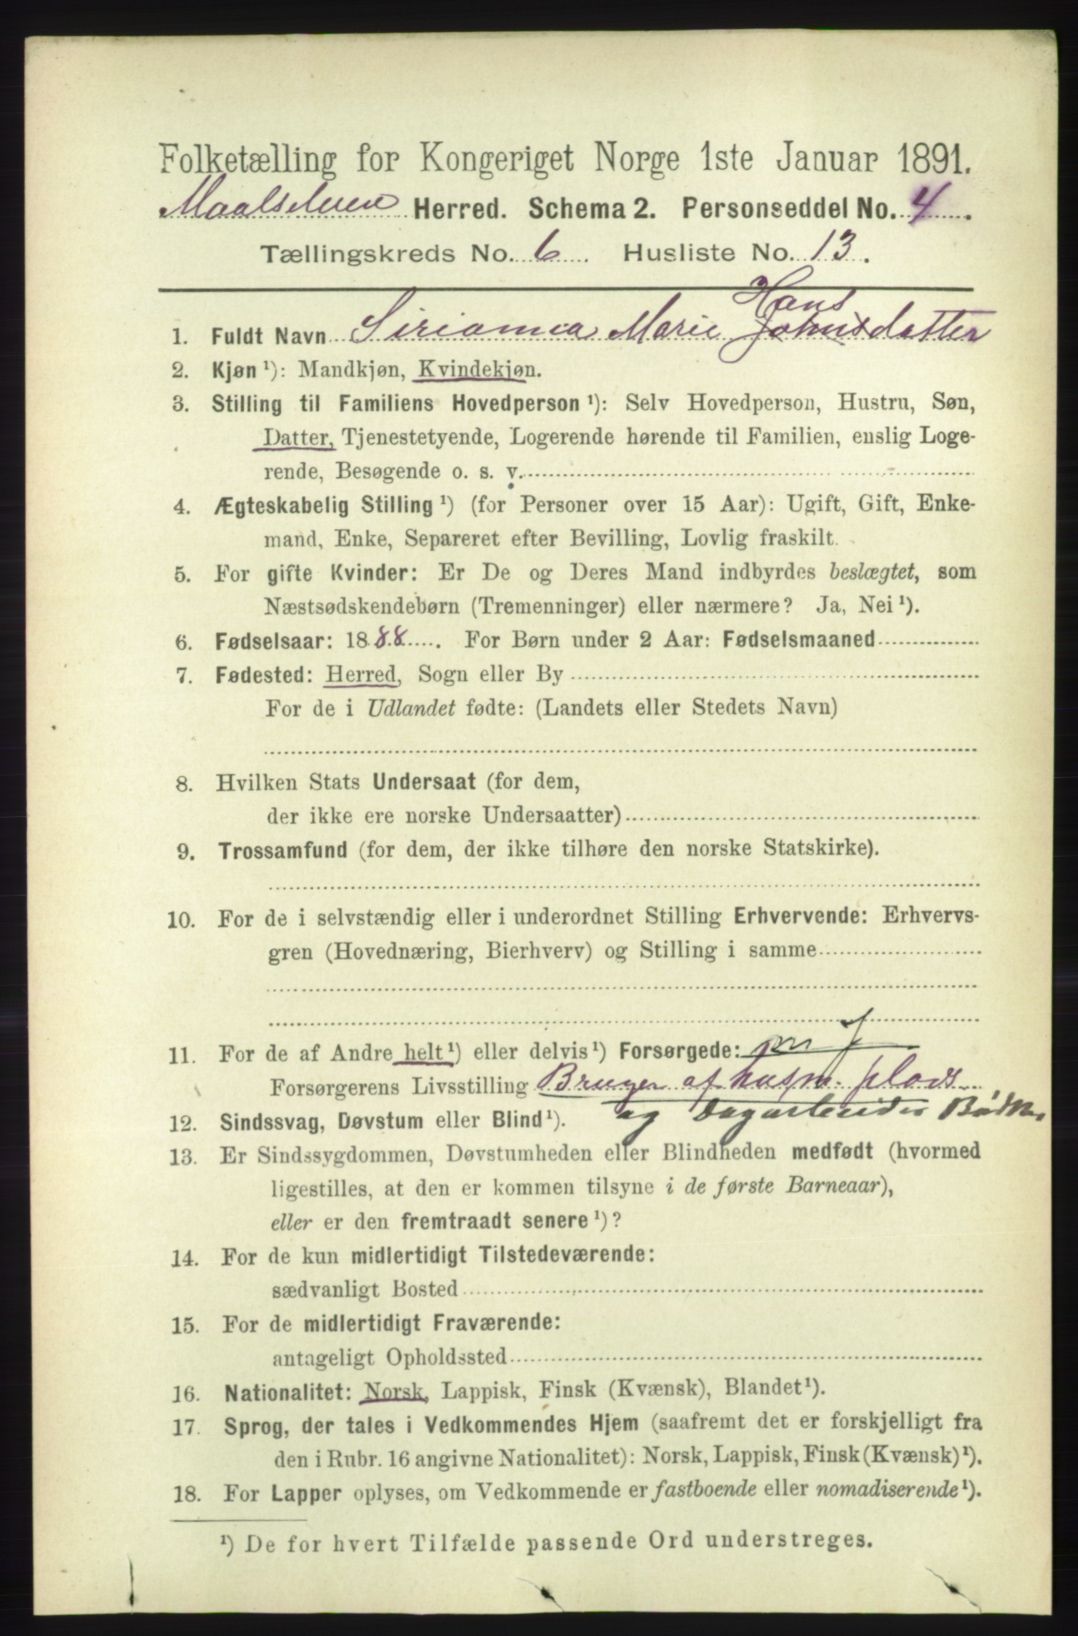 Folketælling for Kongeriget Norge 1ste Januar 1891.
Maalselven Herred. Schema 2. Personseddel No. 4.
Tællingskreds No. 6. Husliste No. 13.
Hans
1. Fuldt Navn Sirianna Marie Johnsdatter
2. Kjøn ¹): Mandkjøn, Kvindekjøn.
3. Stilling til Familiens Hovedperson ¹): Selv Hovedperson, Hustru, Søn,
Datter, Tjenestetyende, Logerende hørende til Familien, enslig Loge-
rende, Besøgende o. s. v.
4. Ægteskabelig Stilling ¹) (for Personer over 15 Aar): Ugift, Gift, Enke-
mand, Enke, Separeret efter Bevilling, Lovlig fraskilt.
5. For gifte Kvinder: Er De og Deres Mand indbyrdes beslægtet, som
Næstsødskendebørn (Tremenninger) eller nærmere? Ja, Nei ¹).
6. Fødselsaar: 1888. For Børn under 2 Aar: Fødselsmaaned
7. Fødested: Herred, Sogn eller By
For de i Udlandet fødte: (Landets eller Stedets Navn)
8. Hvilken Stats Undersaat (for dem,
der ikke ere norske Undersaatter)
9. Trossamfund (for dem, der ikke tilhøre den norske Statskirke).
10. For de i selvstændig eller i underordnet Stilling Erhvervende: Erhvervs-
gren (Hovednæring, Bierhverv) og Stilling i samme
11. For de af Andre helt ¹) eller delvis ¹) Forsørgede:
Forsørgerens Livsstilling Bruger af husm. plads
og Dagarbeider
12. Sindssvag, Døvstum eller Blind ¹).
13. Er Sindssygdommen, Døvstumheden eller Blindheden medfødt (hvormed
ligestilles, at den er kommen tilsyne i de første Barneaar),
eller er den fremtraadt senere ¹)?
14. For de kun midlertidigt Tilstedeværende:
sædvanligt Bosted
15. For de midlertidigt Fraværende:
antageligt Opholdssted
16. Nationalitet: Norsk, Lappisk, Finsk (Kvænsk), Blandet ¹).
17. Sprog, der tales i Vedkommendes Hjem (saafremt det er forskjelligt fra
den i Rubr. 16 angivne Nationalitet): Norsk, Lappisk, Finsk (Kvænsk) ¹).
18. For Lapper oplyses, om Vedkommende er fastboende eller nomadiserende ¹).
¹) De for hvert Tilfælde passende Ord understreges.